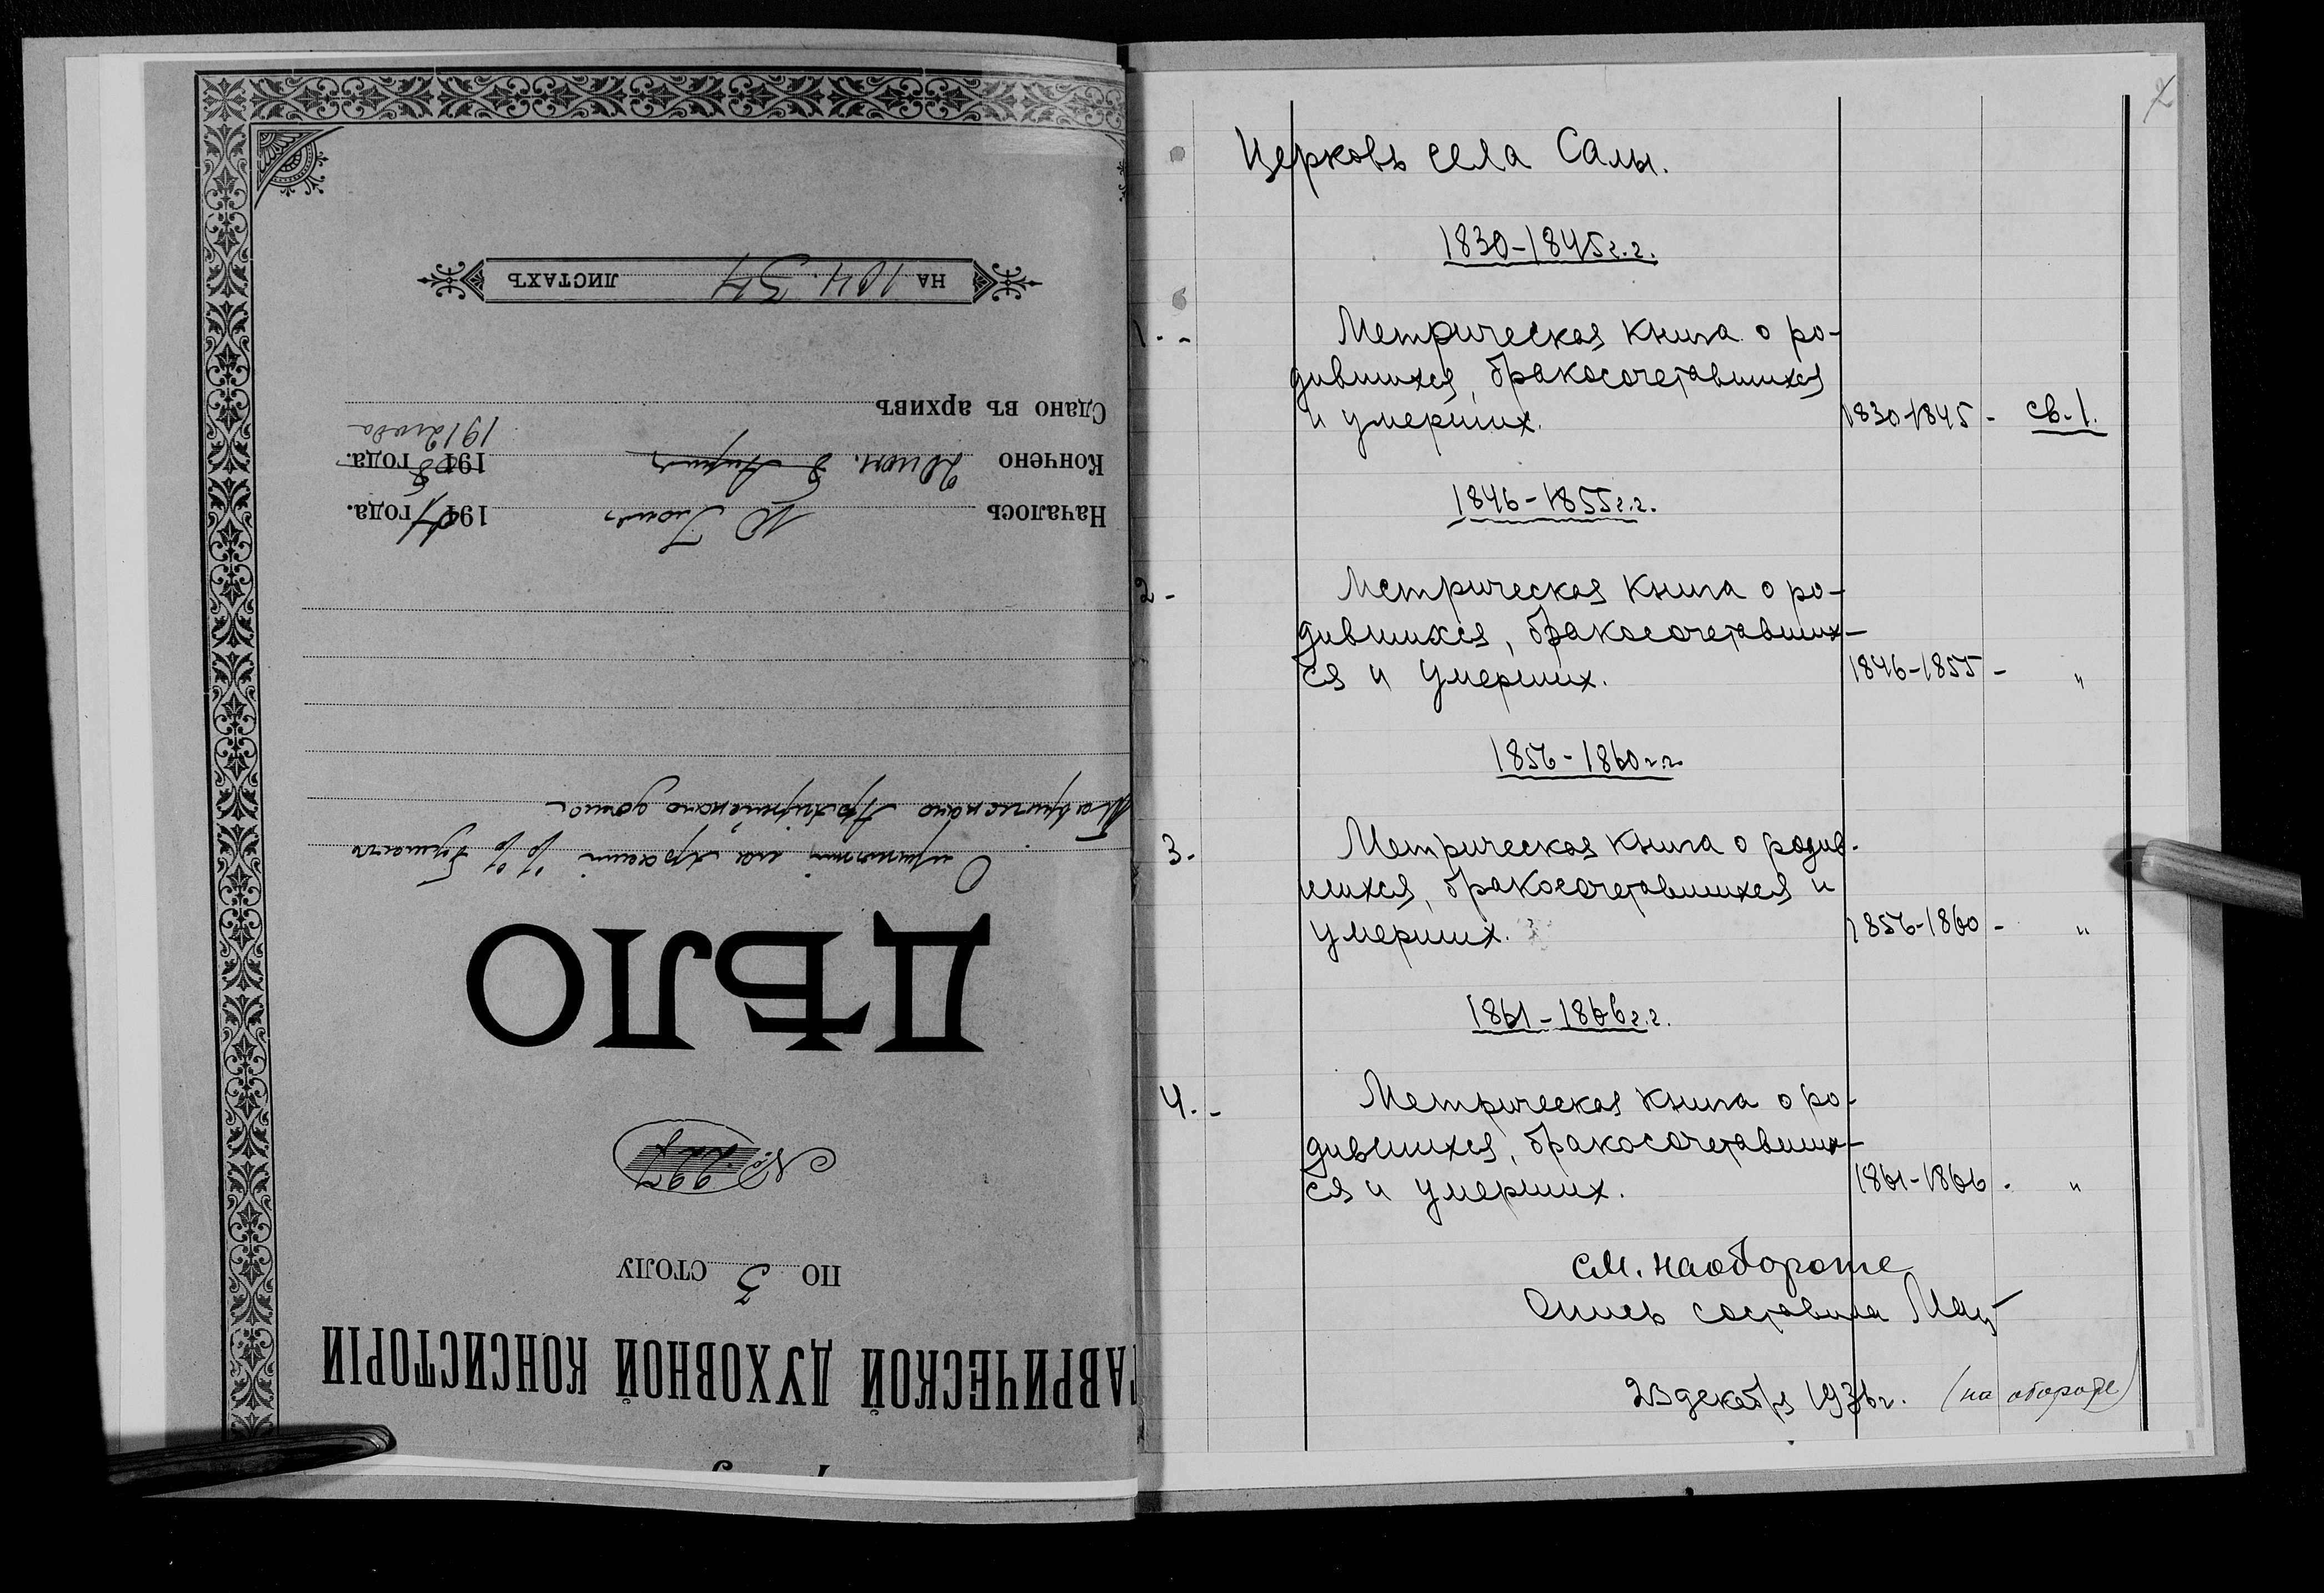 ТАВРИЧЕСКОЙ ДУХОВНОЙ КОНСИСТОРІИ
ПО 3 СТОЛУ
№ 227
ДѢЛО
О принятіи на храненіе %% бумагъ
Таврическаго Архіерейскаго дома
Началось 10 Іюня 191 года.
Кончено Іюн. 8 Апрѣля 191 года.
1912 года
Сдано въ архивъ
НА 104. 34 ЛИСТАХЪ
Церковь села Салы.
1830-1845 г.г.
1. - Метрическая книга о ро-
дившихся, бракосочетавшихся
и умерших. 1830-1845 - св. 1.
1846-1855 г.г.
2 - Метрическая книга о ро-
дившихся, бракосочетавших-
ся и умерших. 1846-1855 - "
1856-1860 г.г.
3. Метрическая книга о родив-
шихся, бракосочетавшихся и
умерших. 1856-1860 - "
1861-1866 г.г.
4. - Метрическая книга о ро-
дившихся, бракосочетавших-
ся и умерших. 1861-1866 - "
см. наобороте
Опись составила
23 декабря 1936 г. (на обороте)